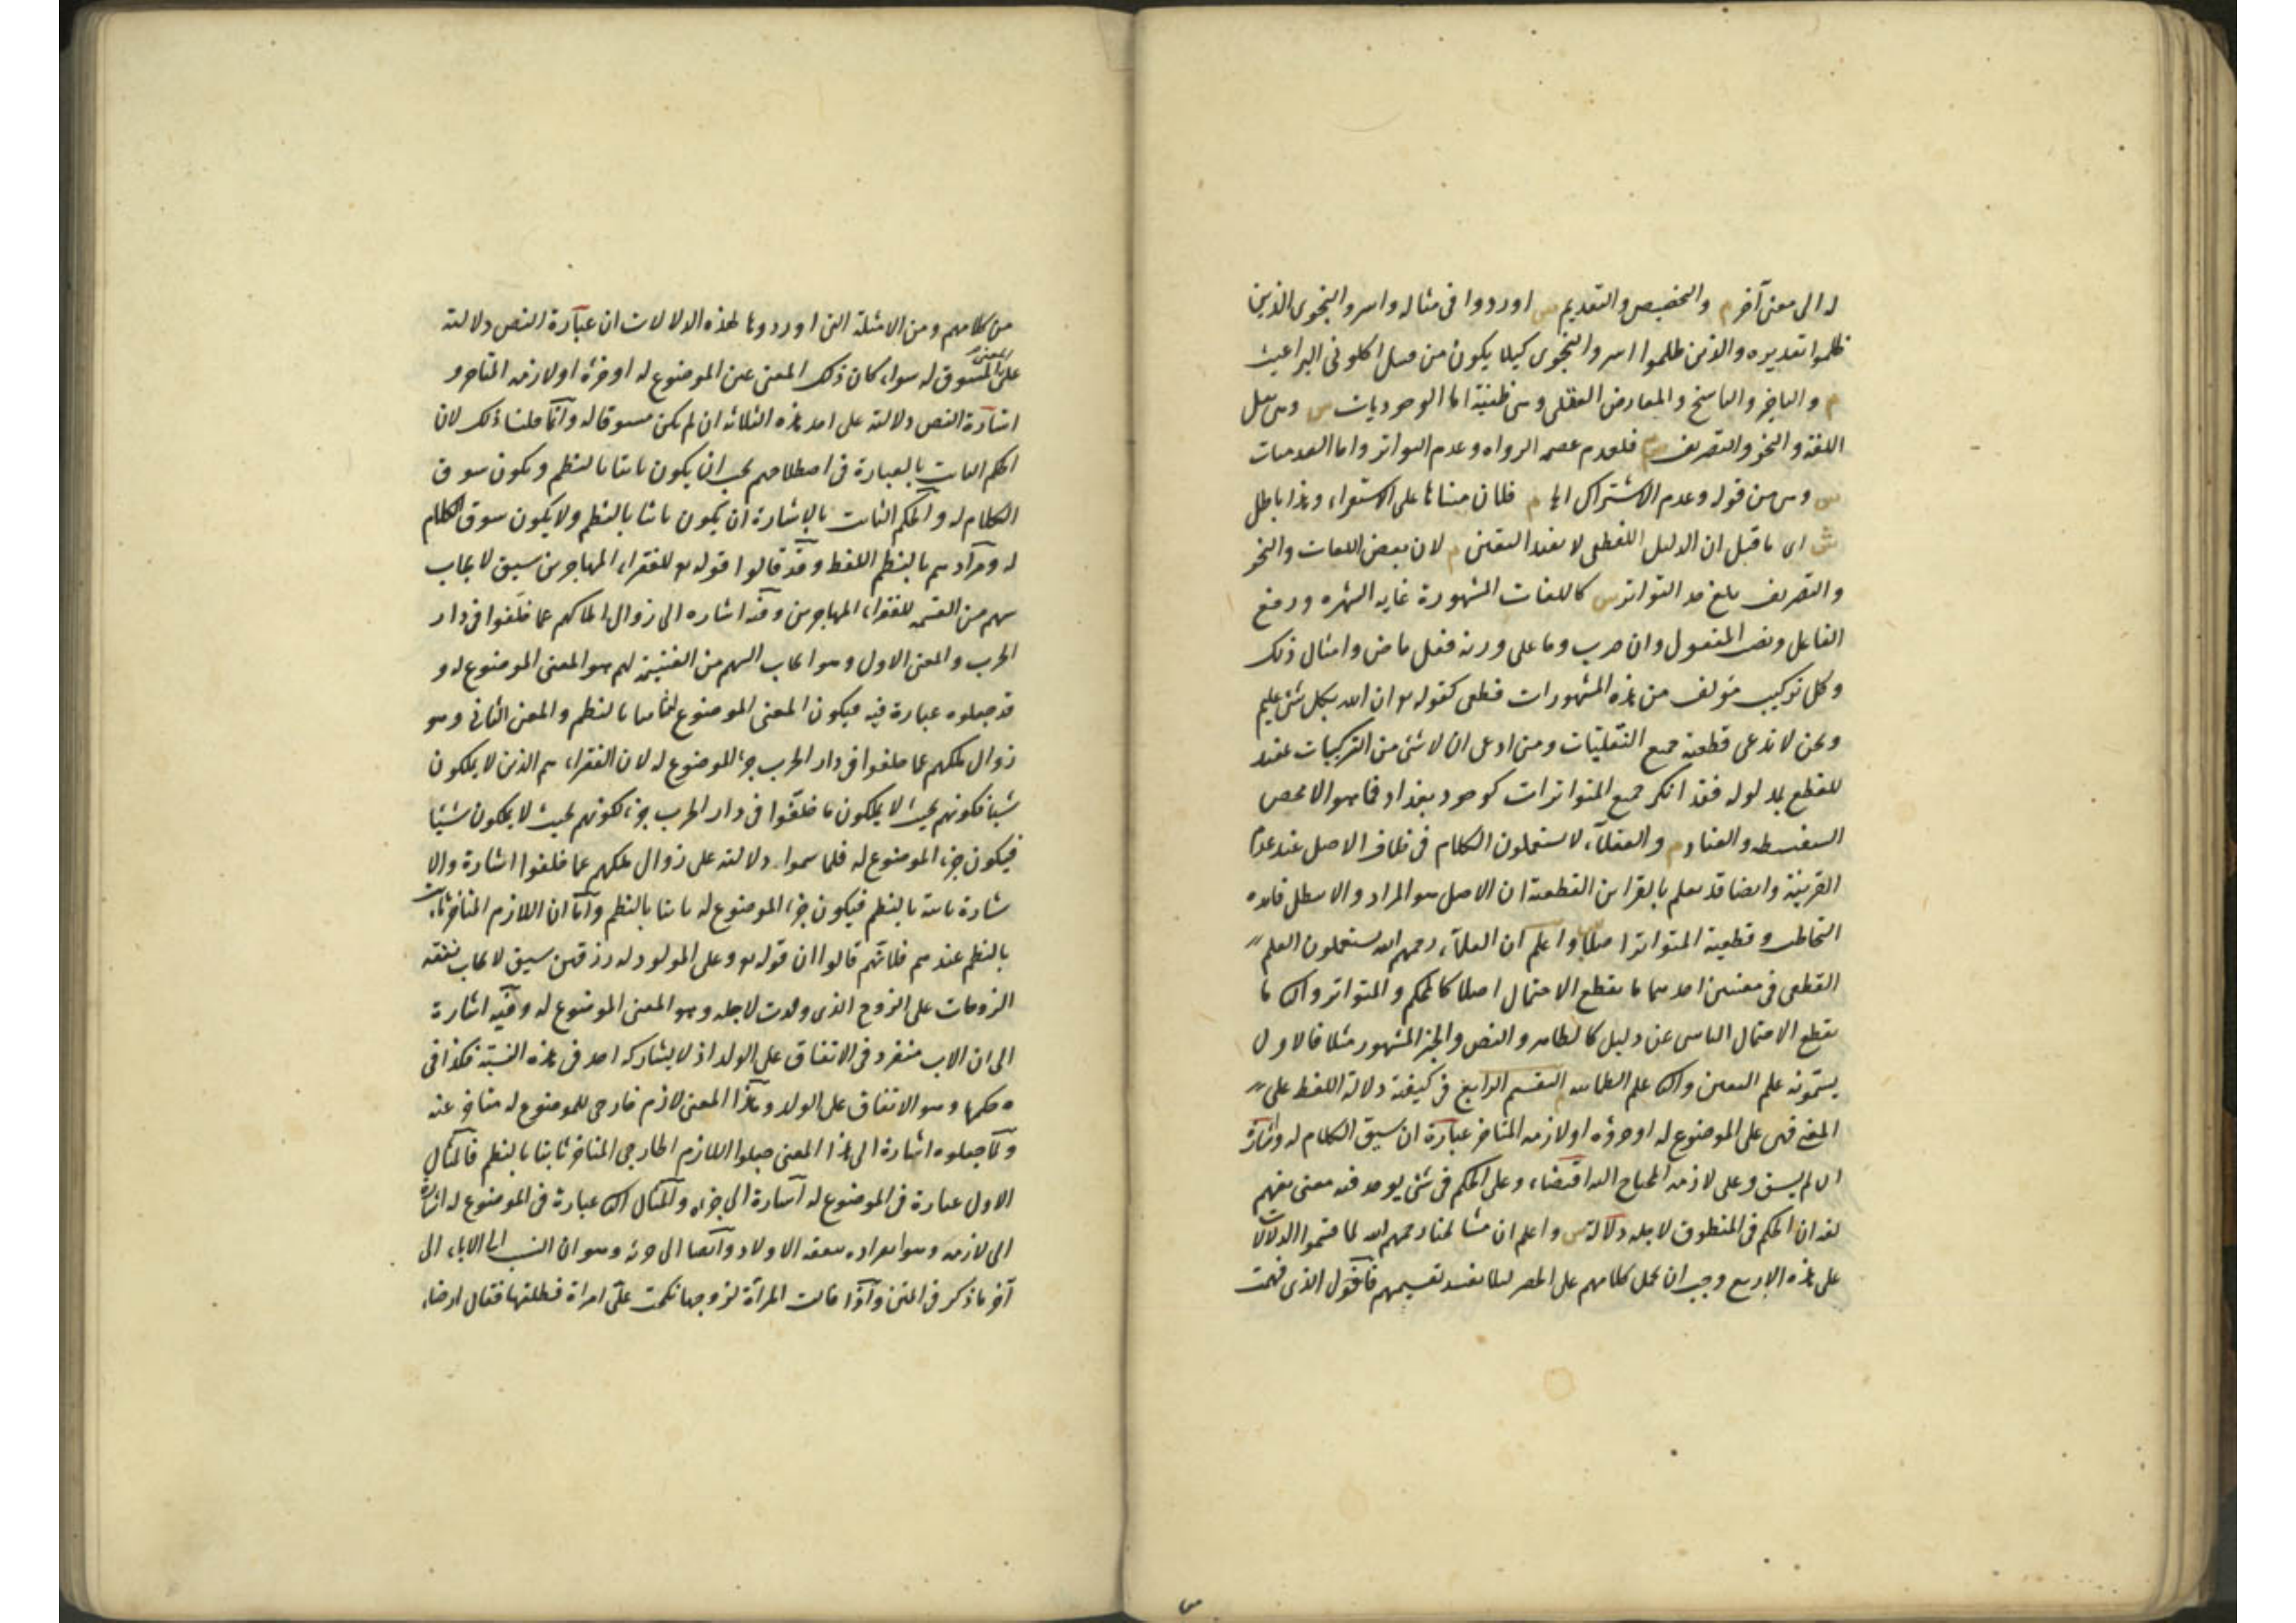 له الى معنى آخر م والتخصيص والتقديم ش اوردوا فى مثاله واسروا النجوى الذين
ظلموا تقديره والذين ظلموا اسروا النجوى كيلا يكون من قبيل اكلونى البراغيث
م والتاخير والناسخ والمعارض العقلى وهى ظنية اما الوجوديات ش وهى نقل
اللغة والنحو والتصريف م فلعدم عصمة الرواه وعدم التواتر واما العدميات
ش وهى من قوله وعدم الاشتراك الى م فلان مبناها على الاستقراء وهذا باطل
ش اى ما قيل ان الدليل اللفظى لا يفيد اليقين م لان بعض اللغات والنحو
والتصريف بلغ حد التواتر ش كاللغات المشهورة غاية الشهره ورفع
الفاعل ونصب المفعول وان ضرب وما على وزنه فعل ماض وامثال ذلك
وكل تركيب مؤلف من هذه المشهورات قطعى كقوله تع ان الله بكل شئ عليم
ونحن لا ندعى قطعية جميع النقليات ومن ادعى ان لا شئ من التركيبات مفيد
للقطع بمدلوله فقد انكر جميع المتواترات كوجود بغداد فما هو الا محض
السفسطه والعناد م والعقلاء لا يستعملون الكلام فى خلاف الاصل عند عدم
القرينة وايضا قد يعلم بالقراين القطعية ان الاصل هو المراد والا يبطل فائده
التخاطب وقطعية المتواتر اصلا واعلم ان العلماء رحمهم الله يستعملون العلم
القطعى فى معنيين احدهما ما يقطع الاحتمال اصلا كالمحكم والمتواتر والثانى ما
يقطع الاحتمال الناشى عن دليل كالظاهر والنص والخبر المشهور مثلا فالاول
يسمونه علم اليقين والثانى علم الطمانينه التقسيم الرابع فى كيفية دلالة اللفظ على
المعنى فهى على الموضوع له او جزؤه او لازمه المتاخر عبارة ان سيق الكلام له واشارة
ان لم يسق وعلى لازمه المحتاج اليه اقتضاء وعلى الحكم فى شئ يوجد فيه معنى يفهم
لغة ان الحكم فى المنطوق لاجله دلالة ش واعلم ان مشايخنا رحمهم الله لما قسموا الدلالات
على هذه الاربع وجب ان يحمل كلامهم على الحصر ليلا يفسد تقسيمهم فاقول الذى فهمت
من كلامهم ومن الامثلة التى اوردوها لهذه الدلالات ان عبارة النص دلالته
على المعنى المسوق له سواء كان ذلك المعنى عين الموضوع له او جزئه او لازمه المتاخر و
اشارة النص دلالته على احد هذه الثلاثه ان لم يكن مسوقا له وانما قلنا ذلك لان
الحكم الثابت بالعبارة فى اصطلاحهم يجب ان يكون ثابتا بالنظم ويكون سوق
الكلام له والحكم الثابت بالاشارة ان يكون ثابتا بالنظم ولا يكون سوق الكلام
له ومرادهم بالنظم اللفظ وقد قالوا قوله تع للفقراء المهاجرين سيق لايجاب
سهم من الغنيمة للفقراء المهاجرين وفيه اشاره الى زوال املاكهم عما خلفوا فى دار
الحرب والمعنى الاول وهو ايجاب السهم من الغنيمة لهم هو المعنى الموضوع له و
قد جعلوه عبارة فيه فيكون المعنى الموضوع له ثابتا بالنظم والمعنى الثانى وهو
زوال ملكهم عما خلفوا فى دار الحرب جزء الموضوع له لان الفقراء هم الذين لا يملكون
شيئا فكونهم بحيث لا يملكون ما خلفوا فى دار الحرب جزء لكونهم بحيث لا يملكون شيئا
فيكون جزء الموضوع له فلما سموا دلالته على زوال ملكهم عما خلفوا اشارة والا
شارة ثابتة بالنظم فيكون جزء الموضوع له ثابتا بالنظم واما ان اللازم المتاخر ثابت
بالنظم عندهم فلانهم قالوا ان قوله تع وعلى المولود له رزقهن سيق لايجاب نفقه
الزوجات على الزوج الذى ولدت لاجله وهو المعنى الموضوع له وفيه اشارة
الى ان الاب منفرد فى الانفاق على الولد اذ لا يشاركه احد فى هذه النسبة فكذا فى
حكمها وهو الانفاق على الولد وهذا المعنى لازم خارجى للموضوع له متاخر عنه
ولما جعلوه اشارة الى هذا المعنى جعلوا اللازم الخارجى المتاخر ثابتا بالنظم فالمثال
الاول عبارة فى الموضوع له اشارة الى جزئه والمثال الثانى عبارة فى الموضوع له اشارة
الى لازمه وهو انفراده بنفقة الاولاد وايضا الى جزئه وهو ان النسب الى الاباء الى
آخر ما ذكر فى المتن واذا قالت المرأة لزوجها نكحت على امراة فطلقها فقال ارضاء